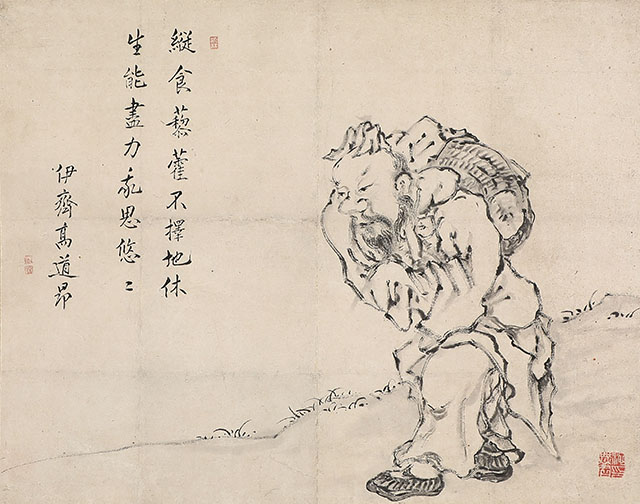 縱食藜藿不擇地休
生能盡力我思悠〻
伊齋高道昂